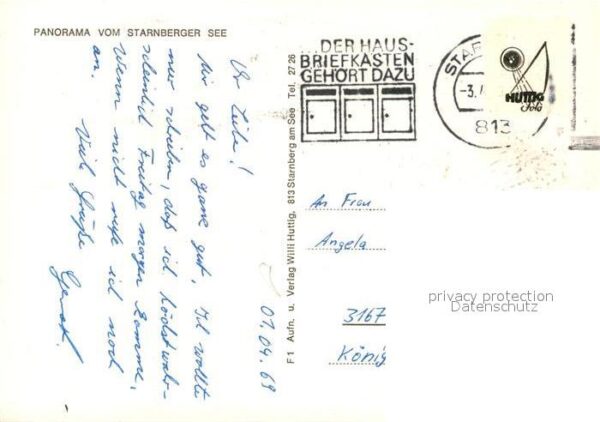 PANORAMA VOM STARNBERGER SEE
01.04.69
Ihr Lieben!
Mir geht es ganz gut, ich wollte
nur schreiben, daß ich höchstwahr-
scheinlich Freitag morgen komme,
wenn nicht rufe ich noch
an.
Viele Grüße
F1 Aufn. u. Verlag Willi Huttig, 813 Starnberg am See Tel. 27 26
...DER HAUS-
BRIEFKASTEN
GEHÖRT DAZU
STAR
-3.
813
HUTTIG
Foto
An Frau
Angela
3167
König
privacy protection
Datenschutz